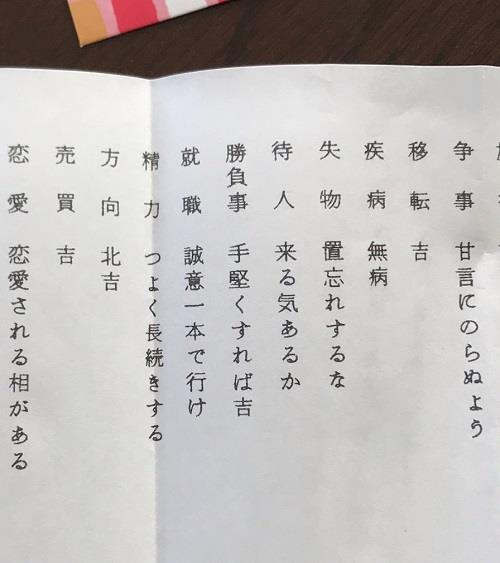 争事 甘言にのらぬよう
移転 吉
疾病 無病
失物 置忘れするな
待人 来る気あるか
勝負事 手堅くすれば吉
就職 誠意一本で行け
精力 つよく長続きする
方向 北吉
売買 吉
恋愛 恋愛される相がある